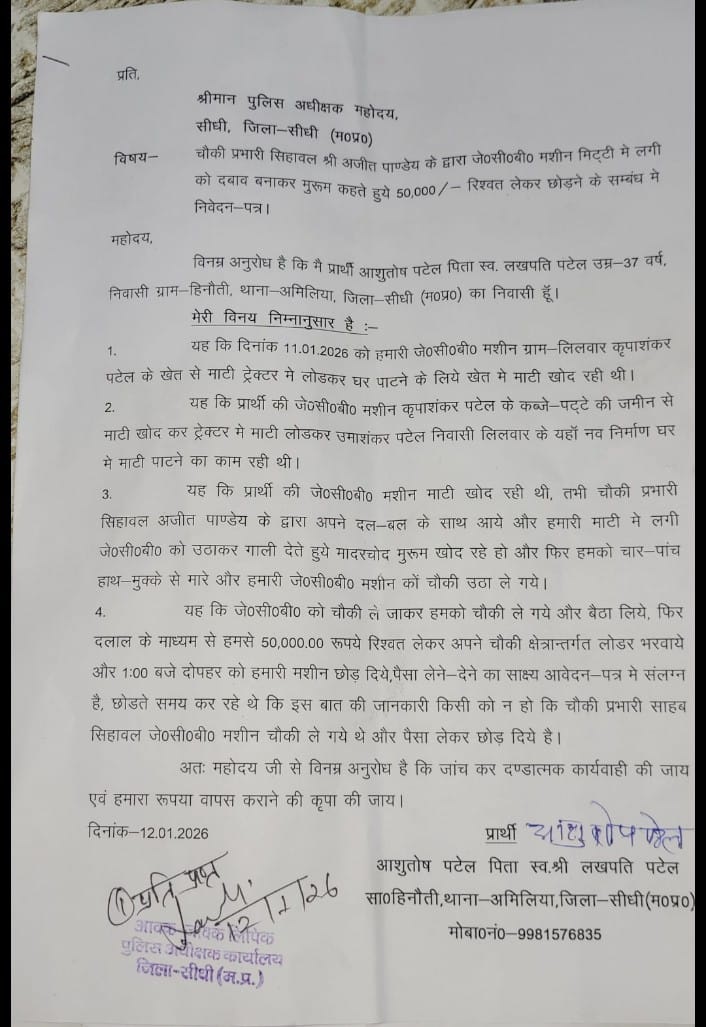 प्रति,
श्रीमान पुलिस अधीक्षक महोदय,
सीधी, जिला–सीधी (म०प्र०)
विषय– चौकी प्रभारी सिहावल श्री अजीत पाण्डेय के द्वारा जे०सी०बी० मशीन मिट्टी मे लगी
को दबाव बनाकर मुरूम कहते हुये 50,000/– रिश्वत लेकर छोड़ने के सम्बंध मे
निवेदन–पत्र।
महोदय,
विनम्र अनुरोध है कि मै प्रार्थी आशुतोष पटेल पिता स्व. लखपति पटेल उम्र–37 वर्ष,
निवासी ग्राम–हिनौती, थाना–अमिलिया, जिला–सीधी (म०प्र०) का निवासी हूँ।
मेरी विनय निम्नानुसार है :–
1. यह कि दिनांक 11.01.2026 को हमारी जे०सी०बी० मशीन ग्राम–लिलवार कृपाशंकर
पटेल के खेत से माटी ट्रेक्टर मे लोडकर घर पाटने के लिये खेत मे माटी खोद रही थी।
2. यह कि प्रार्थी की जे०सी०बी० मशीन कृपाशंकर पटेल के कब्जे–पट्टे की जमीन से
माटी खोद कर ट्रेक्टर मे माटी लोडकर उमाशंकर पटेल निवासी लिलवार के यहॉ नव निर्माण घर
मे माटी पाटने का काम रही थी।
3. यह कि प्रार्थी की जे०सी०बी० मशीन माटी खोद रही थी, तभी चौकी प्रभारी
सिहावल अजीत पाण्डेय के द्वारा अपने दल–बल के साथ आये और हमारी माटी मे लगी
जे०सी०बी० को उठाकर गाली देते हुये मादरचोद मुरूम खोद रहे हो और फिर हमको चार–पांच
हाथ–मुक्के से मारे और हमारी जे०सी०बी० मशीन कों चौकी उठा ले गये।
4. यह कि जे०सी०बी० को चौकी ले जाकर हमको चौकी ले गये और बैठा लिये, फिर
दलाल के माध्यम से हमसे 50,000.00 रूपये रिश्वत लेकर अपने चौकी क्षेत्रान्तर्गत लोडर भरवाये
और 1:00 बजे दोपहर को हमारी मशीन छोड़ दिये,पैसा लेने–देने का साक्ष्य आवेदन–पत्र मे संलग्न
है, छोडते समय कर रहे थे कि इस बात की जानकारी किसी को न हो कि चौकी प्रभारी साहब
सिहावल जे०सी०बी० मशीन चौकी ले गये थे और पैसा लेकर छोड़ दिये है।
अतः महोदय जी से विनम्र अनुरोध है कि जांच कर दण्डात्मक कार्यवाही की जाय
एवं हमारा रूपया वापस कराने की कृपा की जाय।
दिनांक–12.01.2026
प्रार्थी आशुतोष पटेल
आशुतोष पटेल पिता स्व.श्री लखपति पटेल
सा०हिनौती,थाना–अमिलिया,जिला–सीधी(म०प्र०)
मोबा०नं०–9981576835
① प्रति प्राप्त
12/1/26
आवक जावक लिपिक
पुलिस अधीक्षक कार्यालय
जिला-सीधी (म.प्र.)